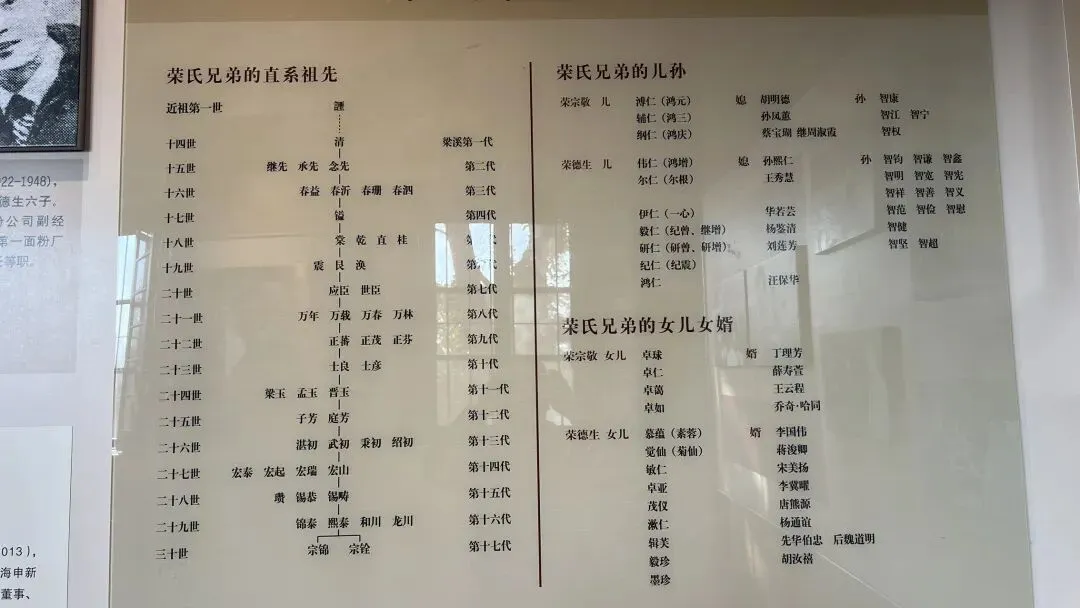 22-1948),
德生六子。
公司副经
第一面粉厂
等职。
013),
海申新
董事、
荣氏兄弟的直系祖先
近祖第一世 諲
十四世 清 梁溪第一代
十五世 继先 承先 念先 第二代
十六世 春益 春沂 春珊 春泗 第三代
十七世 镒 第四代
十八世 棠 乾 直 桂 代
十九世 震 艮 涣 第
二十世 应臣 世臣 第七代
二十一世 万年 万载 万春 万林 第八代
二十二世 正蕃 正茂 正芬 第九代
二十三世 士良 士彦 第十代
二十四世 梁玉 孟玉 晋玉 第十一代
二十五世 子芳 庭芳 第十二代
二十六世 湛初 武初 秉初 绍初 第十三代
二十七世 宏泰 宏起 宏瑞 宏山 第十四代
二十八世 瓒 锡恭 锡畴 第十五代
二十九世 锦泰 熙泰 和川 龙川 第十六代
三十世 宗锦 宗铨 第十七代
荣氏兄弟的儿孙
荣宗敬 儿 溥仁(鸿元) 媳 胡明德 孙 智康
辅仁(鸿三) 孙凤蕙 智江 智宁
纲仁(鸿庆) 蔡宝瑚 继周淑霞 智权
荣德生 儿 伟仁(鸿增) 媳 孙熙仁 孙 智钧 智谦 智鑫
尔仁(尔根) 王秀慧 智明 智宽 智宪
智祥 智善 智义
伊仁(一心) 华若芸 智范 智俭 智慰
毅仁(纪曾、继增) 杨鉴清 智健
研仁(研曾、研增) 刘莲芳 智坚 智超
纪仁(纪震)
鸿仁 汪保华
荣氏兄弟的女儿女婿
荣宗敬 女儿 卓球 婿 丁理芳
卓仁 薛寿萱
卓蔼 王云程
卓如 乔奇·哈同
荣德生 女儿 慕蕴(素蓉) 婿 李国伟
觉仙(菊仙) 蒋浚卿
敏仁 宋美扬
卓亚 李冀曜
茂仪 唐熊源
漱仁 杨通谊
辑芙 先华伯忠 后魏道明
毅珍 胡汝禧
墨珍